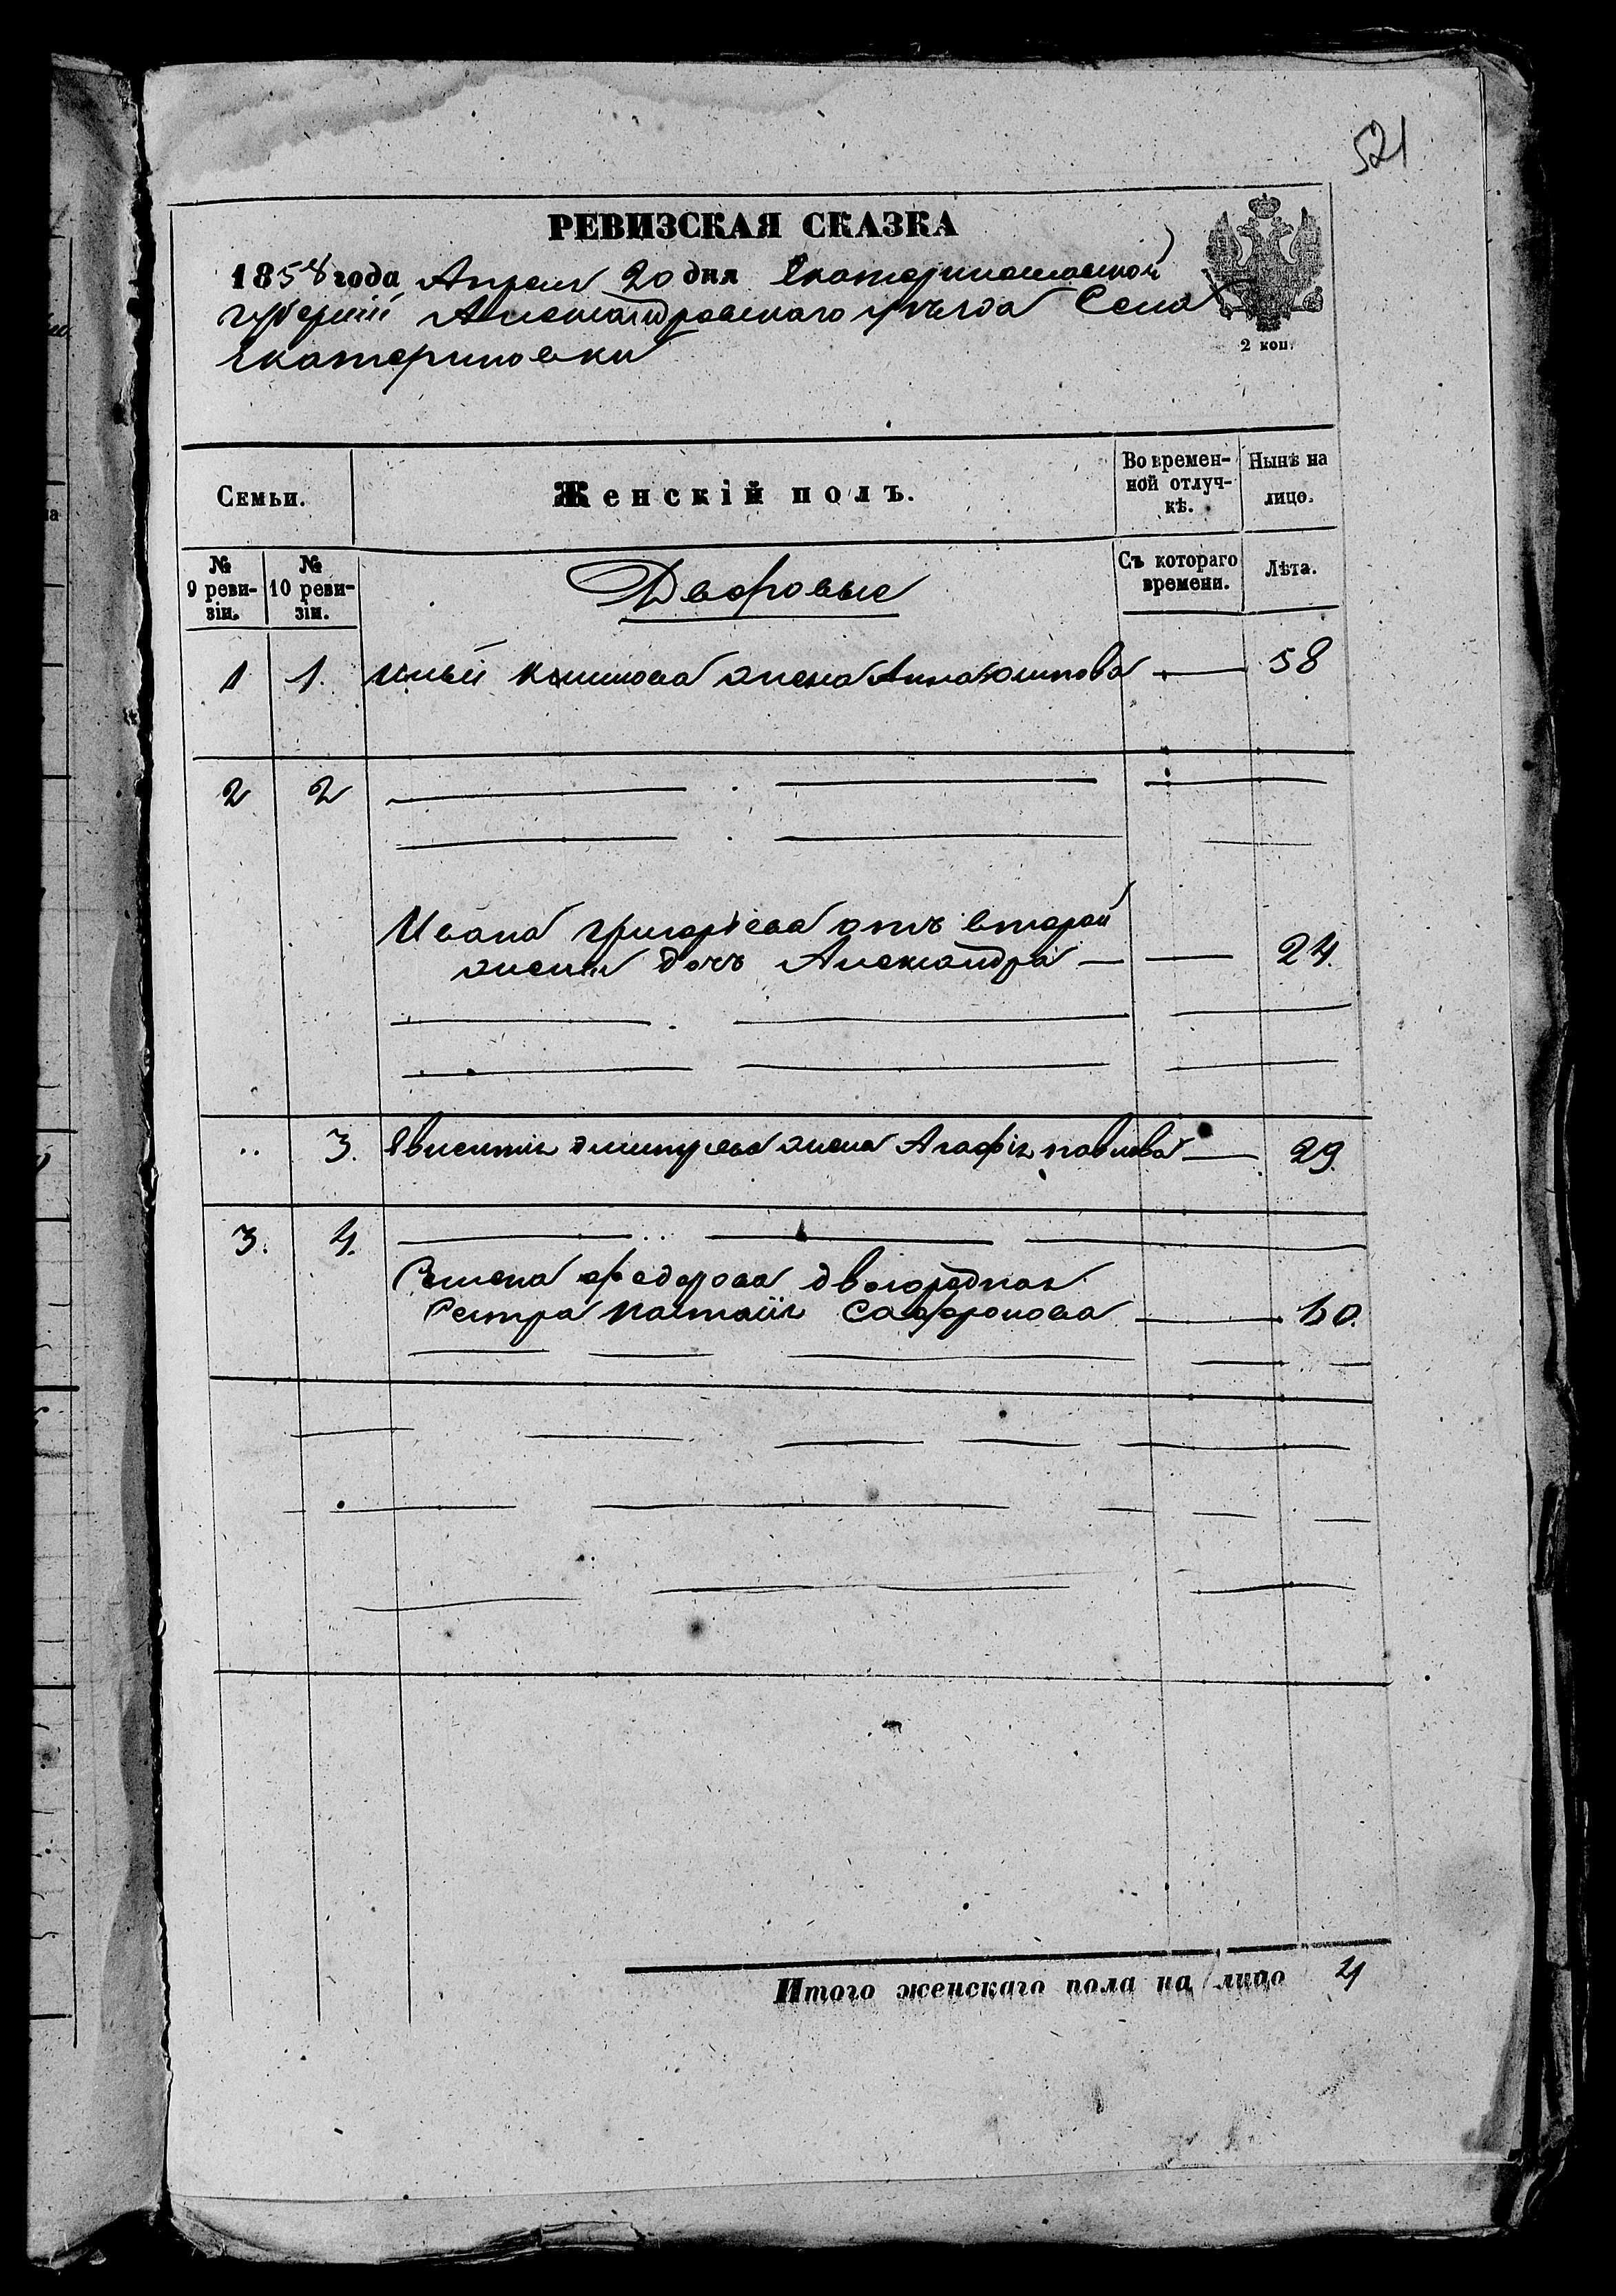 521
РЕВИЗСКАЯ СКАЗКА
1858 года Апреля 20 дня Екатеринославской
губернии Александровскаго уѣзда Села
Екатериновки
2 коп.
Семьи.
Женскій полъ.
Во времен-
ной отлуч-
кѣ.
Нынѣ на
лицо.
№
9 реви-
зіи.
№
10 реви-
зіи.
Дворовые
Съ котораго
времени.
Лѣта.
1 1. жена Анна 58
2 2
Ивана Григорьева отъ второй
жены дочь Александра 24.
3. Дмитрева жена Агафія Павлова 29.
3. 4.
Семена Федорова двоюродная
Сестра Настасія Сафронова
Итого женскаго пола на лицо 4